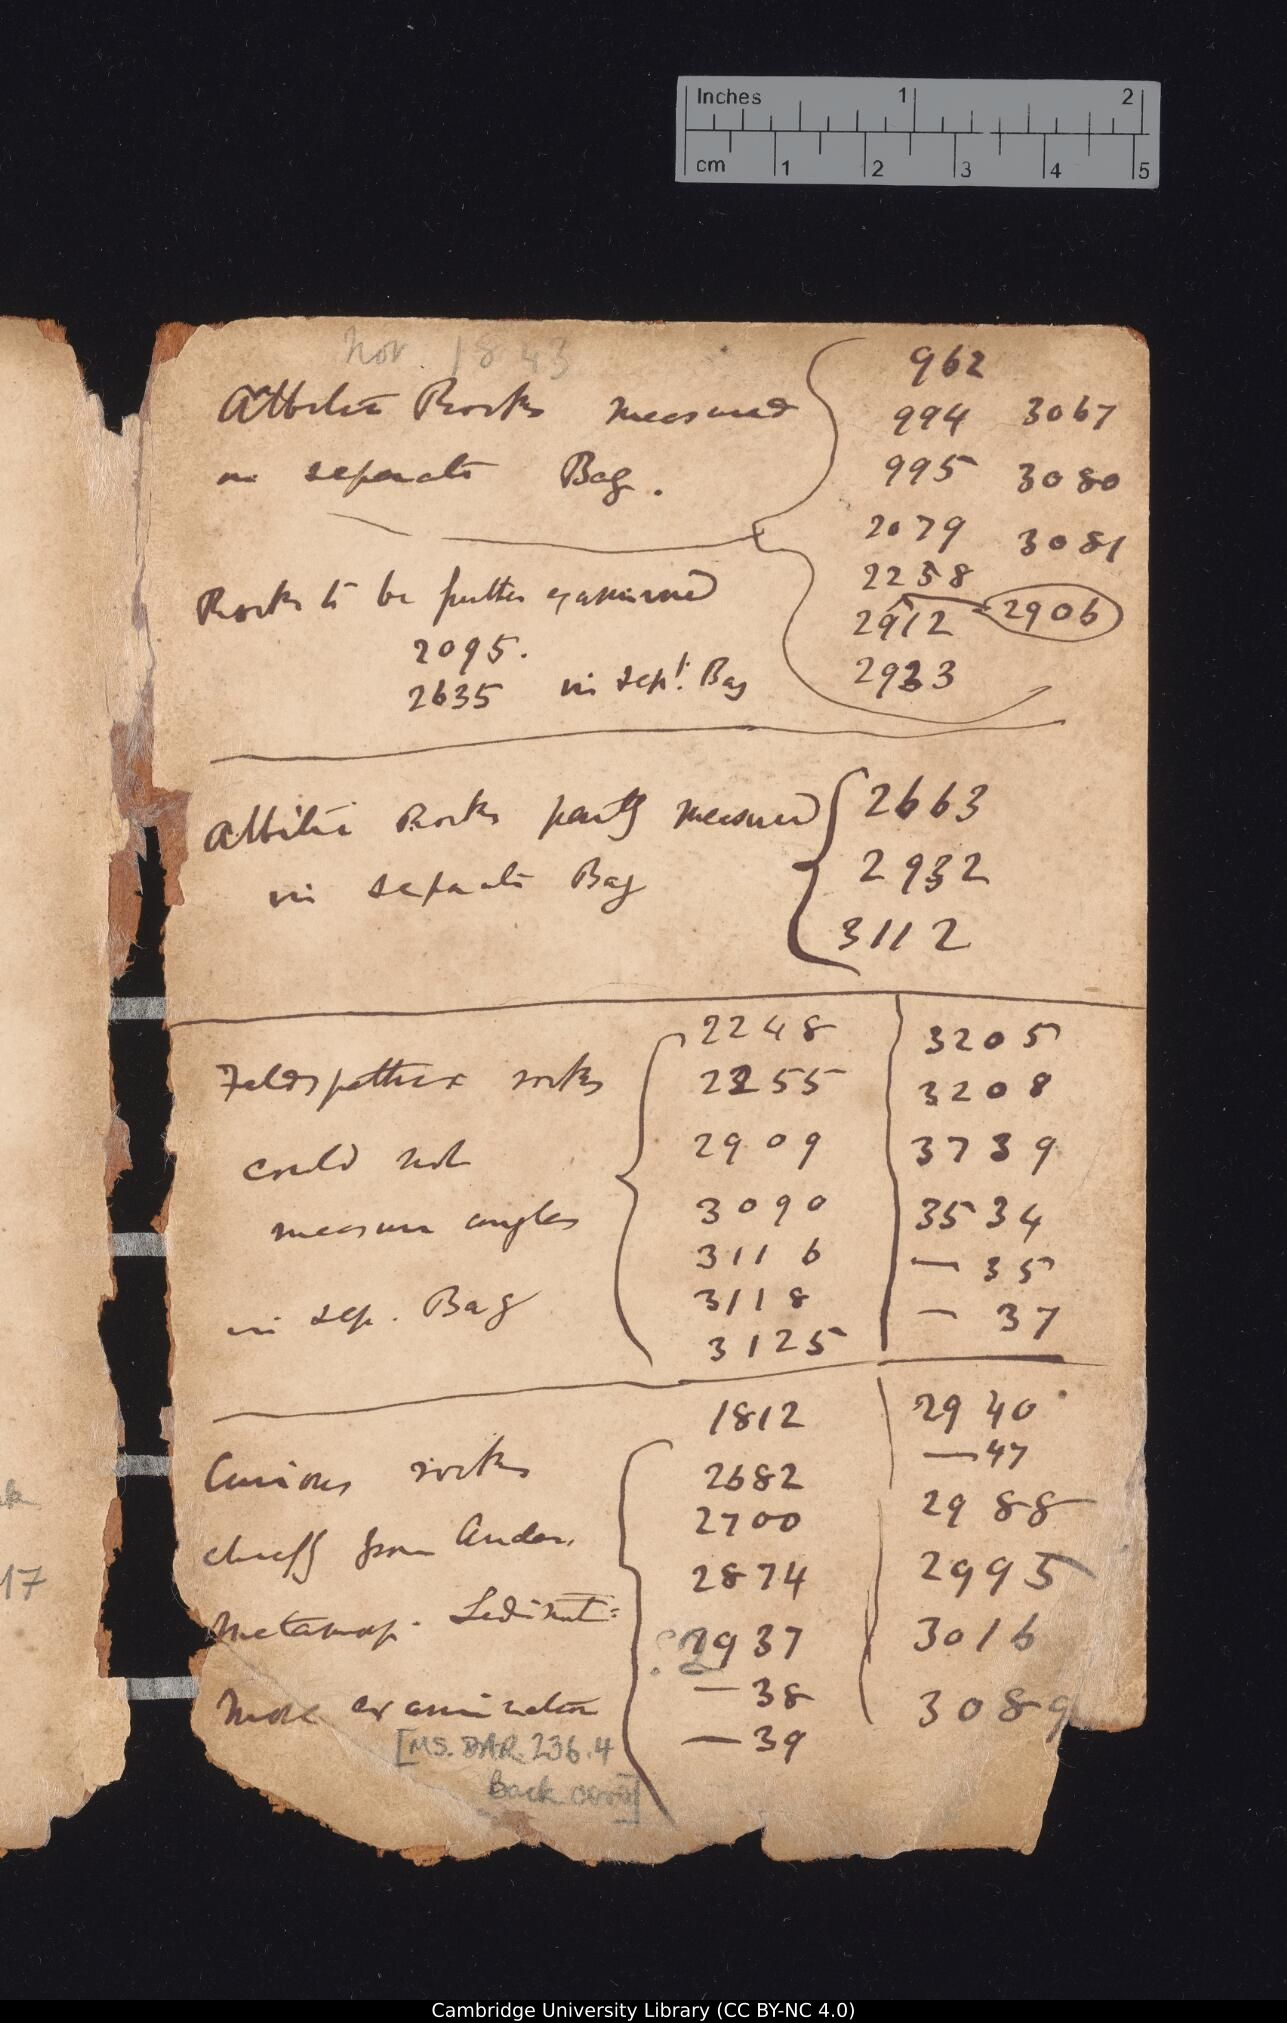 Inches 1 2
cm 1 2 3 4 5
Nov. 1843
Albitic Rocks measured
in separate Bag.
962
994 3067
995 3080
2079 3081
2258
2912 2906
2933
Rocks to be further examined
2095.
2635 in sept. Bag
Albitic Rocks partly measured
in separate Bag
2663
2932
3112
Feldspathic rocks
could not
measure angles
in sep. Bag
2248 3205
2255 3208
2909 3739
3090 3534
3116 — 35
3118 — 37
3125
Curious rocks
chiefly from Andes.
Metamorp. Sediment=
More examination
1812 2940
2682 — 47
2700 2988
2874 2995
2937 3016
— 38 3089
— 39
[MS. DAR. 236.4
Back cover]
17
Cambridge University Library (CC BY-NC 4.0)